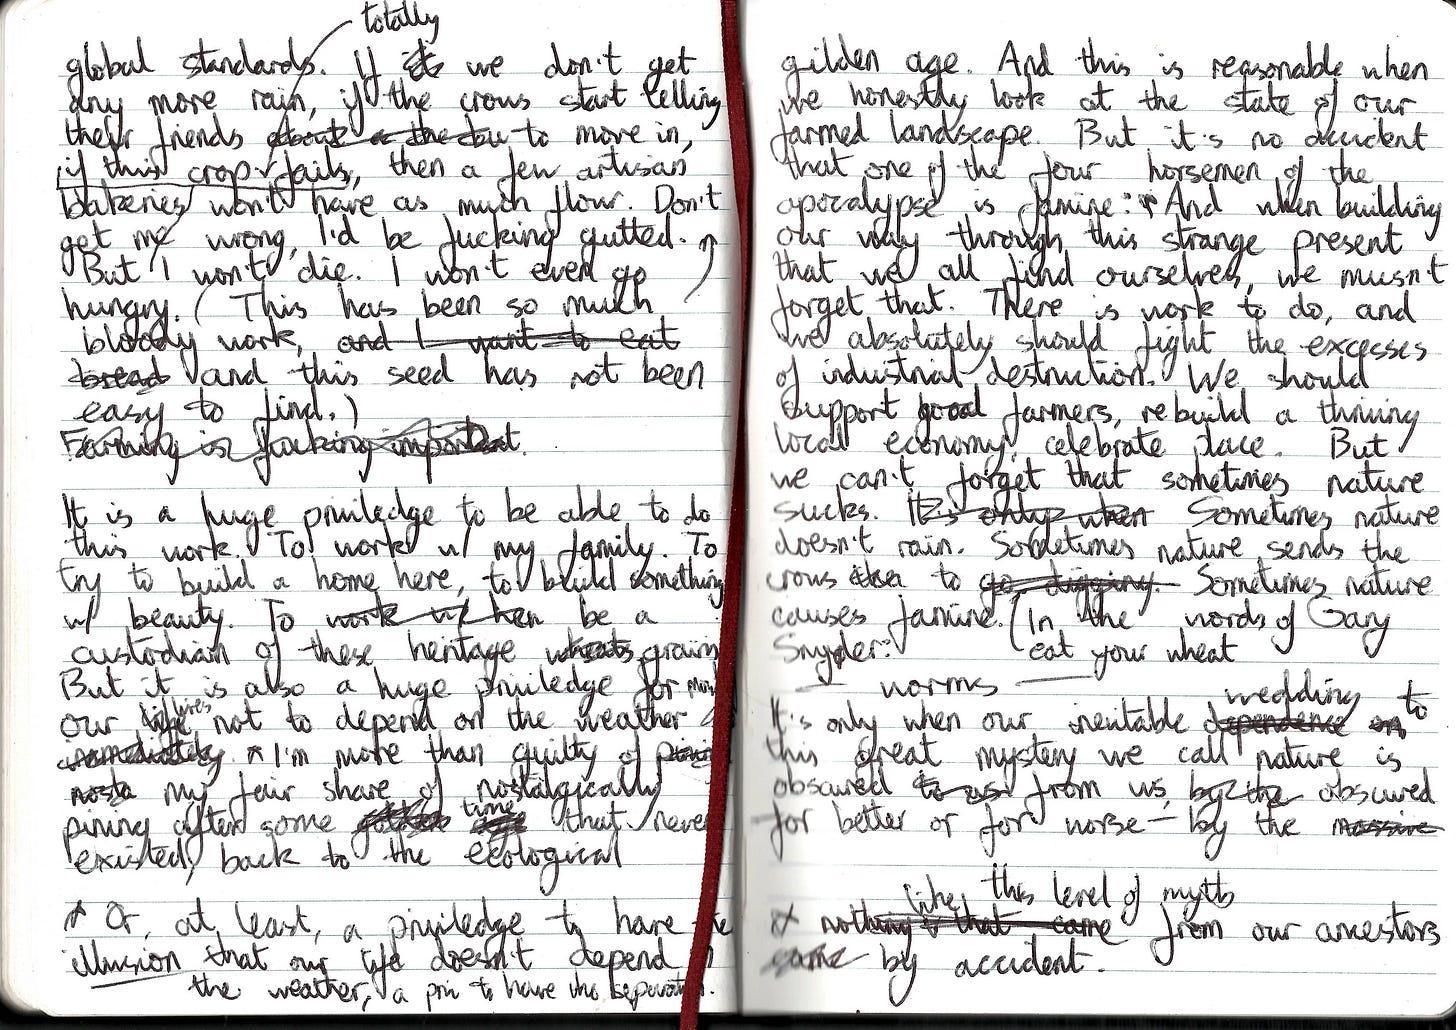 totally
global standards. If its we don't get
any more rain, if the crows start telling
their friends about to more in,
if this crop fails, then a few artisan
bakeries won't have as much flour. Don't
get me wrong, I'd be fucking gutted.
But I won't die. I won't even go
hungry. (This has been so much
bloody work, and I want to eat
bread and this seed has not been
easy to find.)
Farming is fucking important.
It is a huge priviledge to be able to do
this work. To work w/ my family. To
try to build a home here, to build something
w/ beauty. To work w/ be a
custodian of these heritage wheats grains
But it is also a huge priviledge for most
our lives not to depend on the weather
immediately. * I'm more than guilty of pining
nosta my fair share of nostalgically
time
pining after some that never
existed, back to the ecological
* Or, at least, a priviledge to have the
illusion that our life doesn't depend
the weather, a priv to have the separation.
gilden age. And this is reasonable when
we honestly look at the state of our
farmed landscape. But it's no accident
that one of the four horsemen of the
apocalypse is famine:* And when building
our way through this strange present
that we all find ourselves, we musn't
forget that. There is work to do, and
we absolutely should fight the excesses
of industrial destruction. We should
support good farmers, rebuild a thriving
local economy, celebrate place. But
we can't forget that sometimes nature
sucks. It's only when Sometimes nature
doesn't rain. Sometimes nature sends the
crows to go digging. Sometimes nature
causes famine. (In the words of Gary
Snyder: eat your wheat
worms
wedding to
It's only when our inevitable dependence on
this great mystery we call nature is
obscured to us from us, by the obscured
for better or for worse – by the massive
like this level of myth
* nothing that came from our ancestors
same by accident.